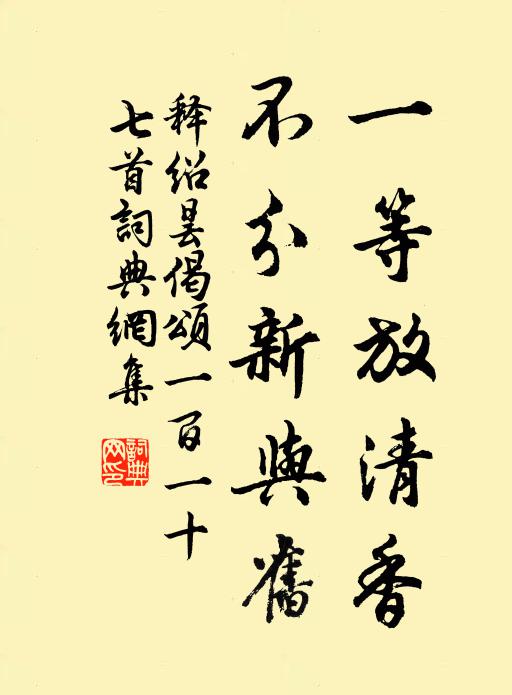 一等放清香
不分新與舊
释绍昙偈頌一百一十
七首詞典網集
詞典網印